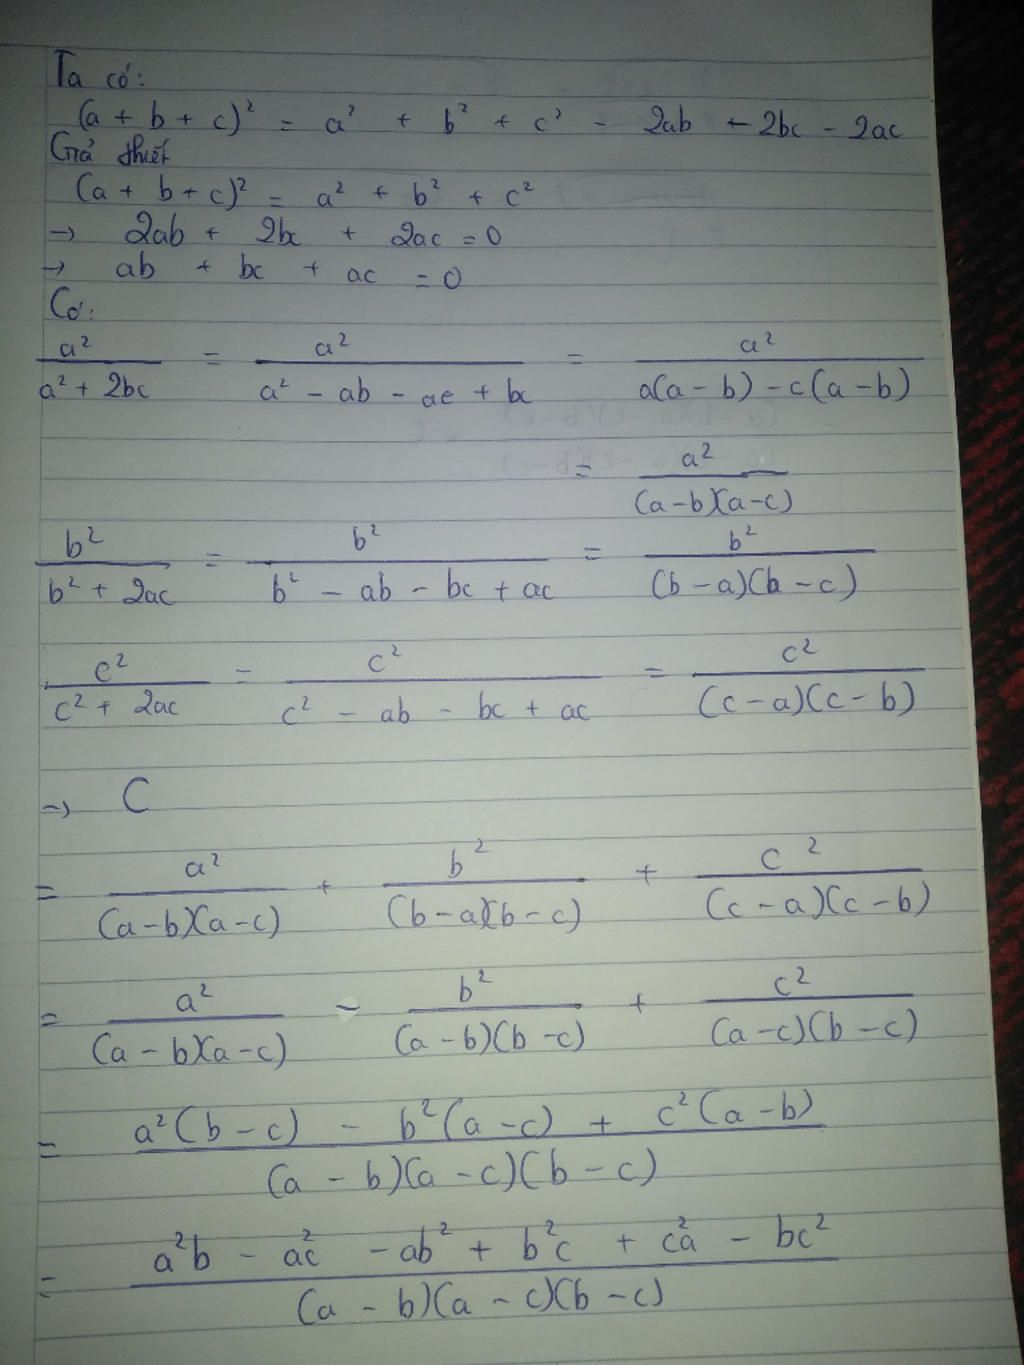 Ta có:
(a + b + c)² = a² + b² + c² - 2ab + 2bc - 2ac
Giả thiết
(a + b + c)² = a² + b² + c²
→ 2ab + 2bc + 2ac = 0
→ ab + bc + ac = 0
Có:
a²/(a² + 2bc) = a²/(a² - ab - ac + bc) = a²/(a(a - b) - c(a - b))
= a²/((a-b)(a-c))
b²/(b² + 2ac) = b²/(b² - ab - bc + ac) = b²/((b-a)(b-c))
c²/(c² + 2ac) = c²/(c² - ab - bc + ac) = c²/((c-a)(c-b))
→ C
= a²/((a-b)(a-c)) + b²/((b-a)(b-c)) + c²/((c-a)(c-b))
= a²/((a-b)(a-c)) - b²/((a-b)(b-c)) + c²/((a-c)(b-c))
= (a²(b-c) - b²(a-c) + c²(a-b))/((a-b)(a-c)(b-c))
= (a²b - ac² - ab² + b²c + c²a - bc²)/((a-b)(a-c)(b-c))